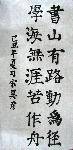 書山有路勤為徑
學海無涯苦作舟
己丑年夏月